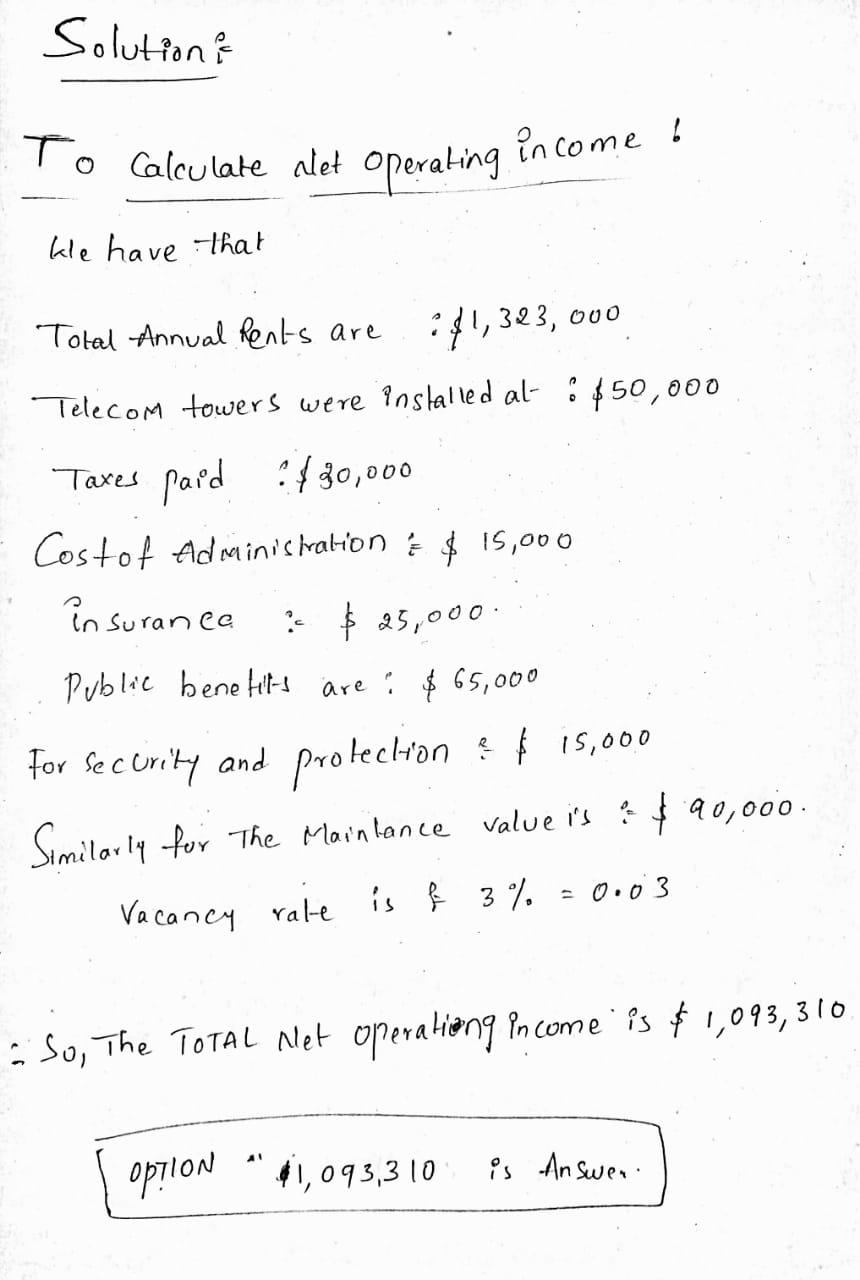 Solution :-
To Calculate Net Operating income :
We have that
Total Annual Rents are : $1,323,000
Telecom towers were installed at : $50,000
Taxes paid : $30,000
Cost of Administration :- $ 15,000
insurance :- $ 25,000.
Public benefits are : $ 65,000
For Security and protection :- $ 15,000
Similarly for The Maintance value is :- $ 90,000.
Vacancy rate is :- 3% = 0.03
:- So, The TOTAL Net operationg income is $ 1,093,310
OPTION " $1,093,310 is Answer.